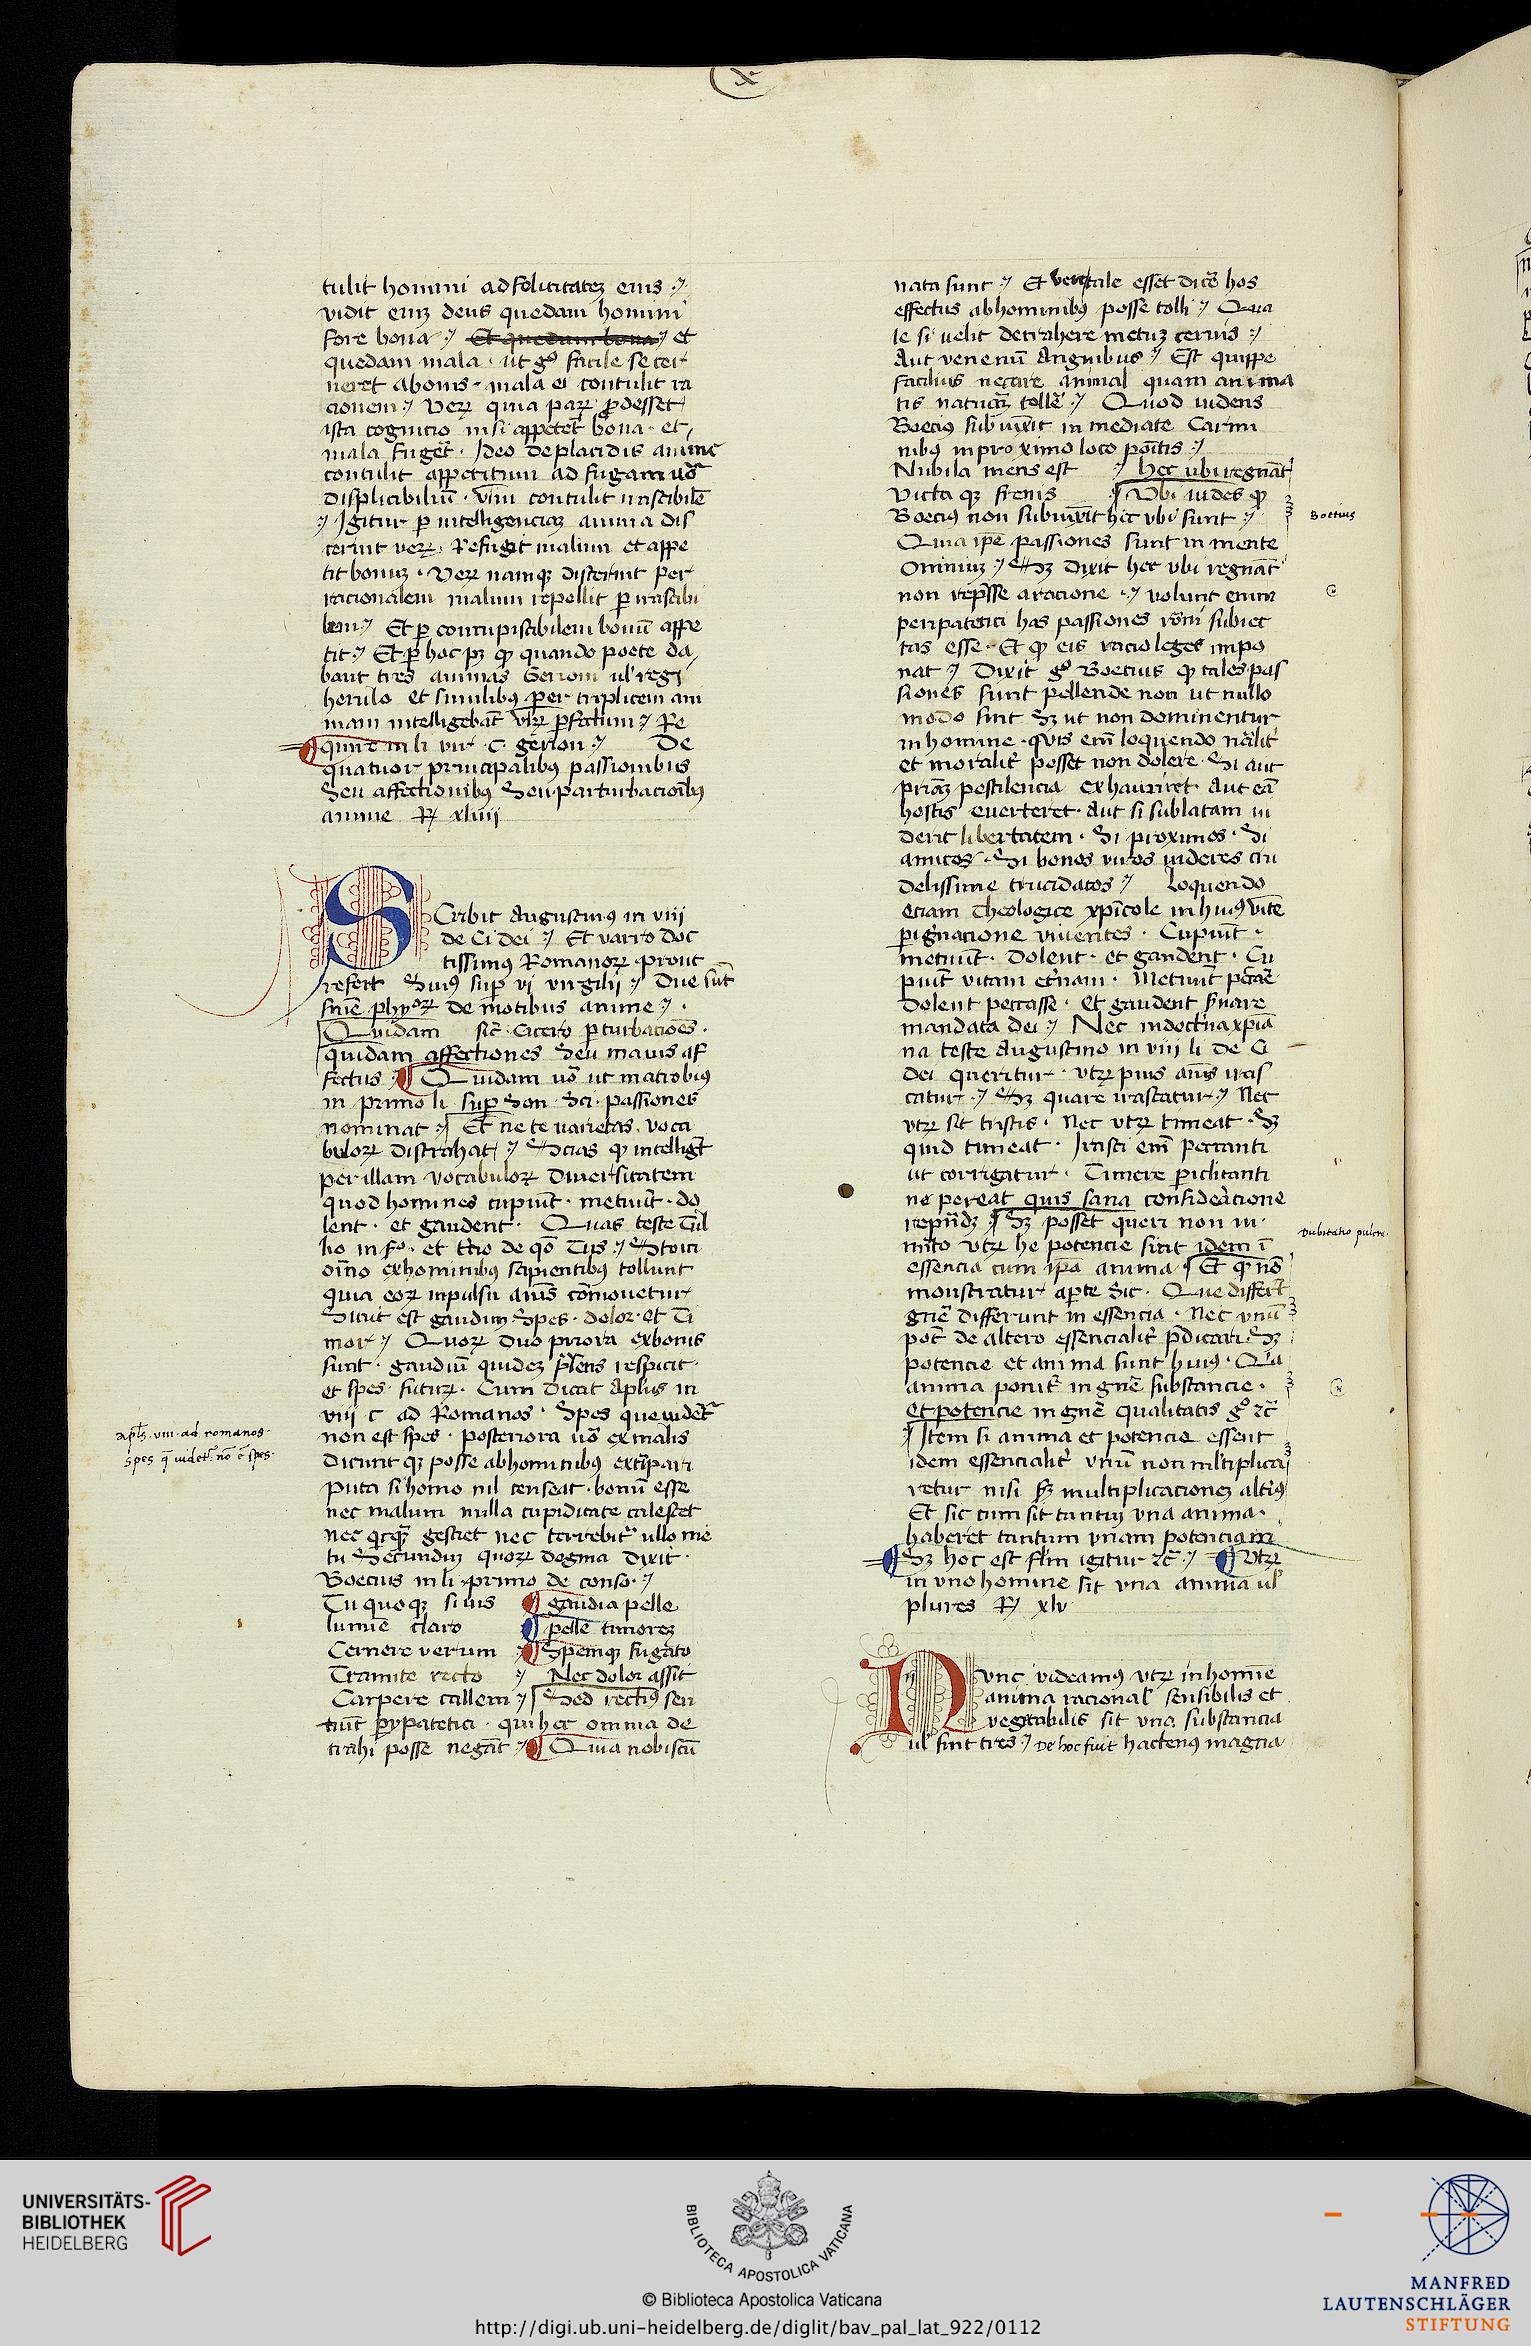 x
tulit homini ad felicitatez eius ·
vidit eniz deus quedam homini
fore bona · Et quedam bona et
quedam mala · ut gͦ facile secer
neret abonis · mala ei contulit ra
cionem · Veꝝ quia paꝝ ꝓdesset
ista cognicio nisi appeteret bona · et
mala fugeret · Ideo de placidis anime
contulit appetitum ad fugam uͦ
displicibiliū · vim contulit irascibilē
Igitur ꝑ intelligenciaz anima dis
cernit veꝝ · Refugit malum et appe
tit bonuz · Veꝝ namqꝫ discernit per
racionalem malum repellit ꝑ irascibi
lem · Et ꝑ concupiscibilem bonū appe
tit · Et ꝑ hoc pꝫ ꝙ quando poete da
bant tres animas Gerioni ul' regi
herulo et similibꝰ per triplicem ani
mam intelligebāt · Re
quire in li · c · gerion · De
quatuor principalibus passionibus
Seu affectionibus Seu parturbacionibus
anime R xliiii
SCribit Augustinꝰ in viii
de Ci dei · Et varro doc
tissimꝰ Romanoꝝ prout
refert Suiꝰ suꝑ vi virgilij · Due sūt
de motibus anime ·
Quidam sic̄ Cicero ꝑturbacionēs ·
quidam affectiones Seu mauis af
fectus · Quidam uͦ ut macrobiꝰ
in primo li suꝑ Son · Sci · passiones
nominat · Et ne te varietas · voca
buloꝝ distrahat · Scias ꝙ intelligit
per illam vocabuloꝝ diuersitatem
quod homines cupiūt · metuūt · do
lent · et gaudent · Quas teste Tul
lio in Stoici
oīno exhominibus sapientibus tollunt
quia eoꝝ inpulsu anīs cōmouetur
Sicut est gaudiuz Spes · dolor · et Ti
mor · Quoꝝ duo priora exbonis
sunt · gaudiū quidez respicit ·
et spes · futuꝝ · Cum dicat Apl'us in
viii c ad Romanos · Spes que uidet'
non est spes · posteriora uͦ ex malis
dicunt qꝫ posse abhominibus extirpari
puta si homo nil censeat · bonū esse
nec malum nulla cupiditate calescet
nec gestiet nec terrebit' ullo me
tu Secunduz quoꝝ dogma dixit ·
Boecius in li · primo de conso ·
Tu quoqꝫ si uis gaudia pelle
lumine claro pelle timorez
Cernere verum Spemqꝫ fugato
Tramite recto Nec dolor assit
Carpere callem · Sed recciꝰ sen
ciūt ꝑypatetici · qui hec omnia de
trahi posse negāt · Quia nobiscū
apl's · viii · ad romanos ·
spes q̄ uidet' · nō ē spes ·
nata sunt · Et tale esset dicere hos
effectus abhominibus posse tolli · Qua
le si uelit detrahere metuz ceruis ·
Aut venenū Anguibus · Est quippe
facilius necare animal quam anima
tis naturaz tollere · Quod uidens
Boeciꝰ subiūxit in mediate Carmi
nibꝰ in proximo loco positis ·
Nubila mens est hec ubi regnāt
Victa qꝫ frenis Vbi uides ꝙ
Boeciꝰ non subiūxit hec vbi sunt ·
Quia ipse passiones sunt in mente
Ominiuz · Sꝫ dixit hec vbi regnāt
non represse a racione · volunt enim
peripatetici has passiones subiec
tas esse · Et ꝙ eis racio leges impo
nat · Dixit gͦ Boecius ꝙ tales pas
siones sunt pellende non ut nullo
modo sint Sꝫ ut non dominentur
in homine · quis enī loquendo
et moralit' posset non dolere · Si aut
pestilencia exhauriret · aut eā
hostis euerteret · aut si sublatam ui
derit libertatem · Si proximos · Si
amicos · Si bonos viros uideres cru
delissime trucidatos · Loquendo
eciam Theologice in huiꝰ vite
ꝑigrinacione viuentes · Cupiūt ·
metuūt · dolent · et gaudent · Cu
piūt vitam et'nam · Metuūt peccare
Dolent peccasse · Et gaudent seruare
mandata dei · Nec in doctrina xp̄ia
na teste Augustino in viii li de Ci
dei queritur · vtꝝ pius anīs iras
catur · Sꝫ quare irascatur · Nec
vtꝝ sit tristis · Nec vtꝝ timeat · Sꝫ
quid timeat · Irasci enī peccanti
ut corrigatur · Timere ꝑiclitanti
ne pereat quis sana consideracione
· Sꝫ posset queri non in
merito vtꝝ he potencie sint idem ī
essencia cum ipā anima · Et ꝙ nō
monstratur aperte Sic · Que differūt
genere differunt in essencia · Nec vnū
potest de altero essencialit' predicari · Sꝫ
potencie et anima sunt huiꝰ · Qia
anima ponit' in genere substancie ·
et potencie in genere qualitatis gͦ ⁊c̄
Item si anima et potencie essent
idem essencialit' vnū non multiplica
retur nisi multiplicacionez alteriꝰ
Et sic cum sit tantuz vna anima ·
haberet tantum vnam potenciam
Sꝫ hoc est fl'm igitur ⁊c̄ · Vtꝝ
in vno homine sit vna anima ul'
plures R xlv
NVnc videamꝰ vtꝝ in homine
anima racional' sensibilis et
vegetabilis sit vna substancia
ul' sint tres · De hoc fuit hactenꝰ magna
Boetius
Dubitatio pulcra ·
UNIVERSITÄTS-
BIBLIOTHEK
HEIDELBERG
BIBLIOTECA APOSTOLICA VATICANA
© Biblioteca Apostolica Vaticana
http://digi.ub.uni-heidelberg.de/diglit/bav_pal_lat_922/0112
MANFRED
LAUTENSCHLÄGER
STIFTUNG